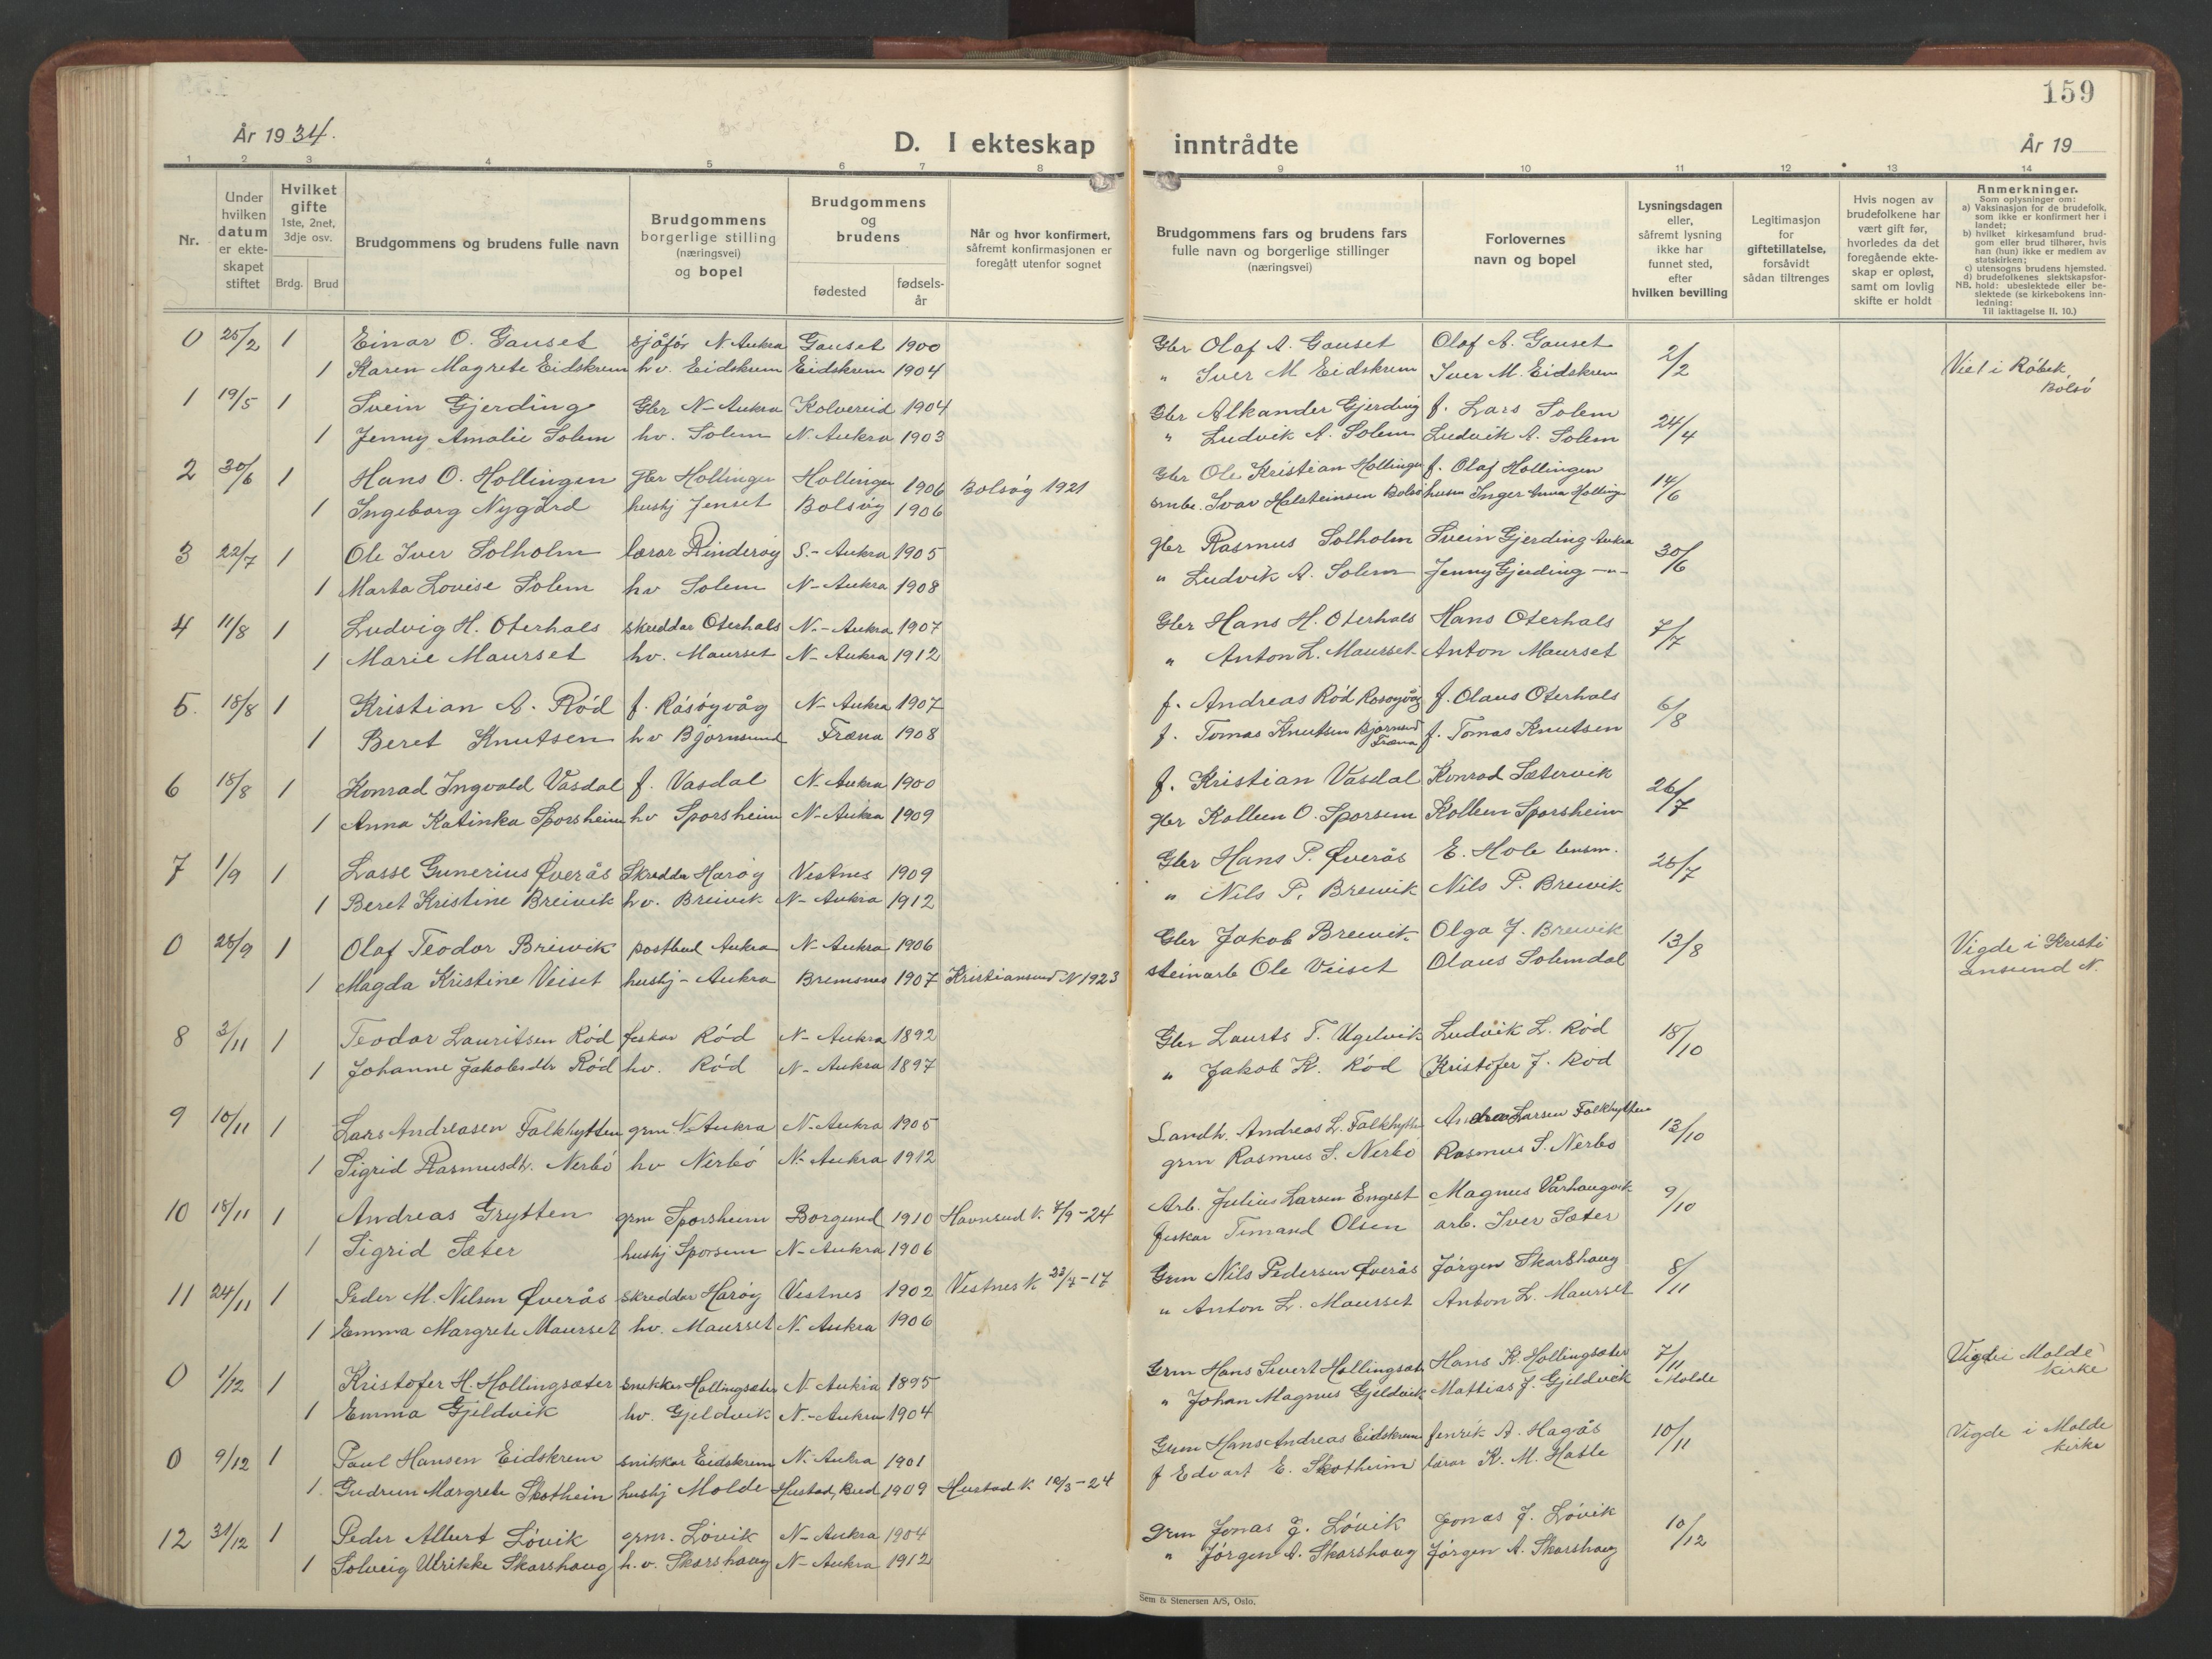 159
År 1934.
D. I ekteskap inntrådte
År 19
1 2 3 4 5 6 7 8 9 10 11 12 13 14
Nr.
Under hvilken datum er ekte-skapet stiftet
Hvilket gifte 1ste, 2net, 3dje osv.
Brdg. Brud
Brudgommens og brudens fulle navn
Brudgommens borgerlige stilling (næringsvei) og bopel
Brudgommens og brudens
fødested
fødsels-år
Når og hvor konfirmert, såfremt konfirmasjonen er foregått utenfor sognet
Brudgommens fars og brudens fars fulle navn og borgerlige stillinger (næringsvei)
Forlovernes navn og bopel
Lysningsdagen eller, såfremt lysning ikke har funnet sted, efter hvilken bevilling
Legitimasjon for giftetillatelse, forsåvidt sådan tiltrenges
Hvis nogen av brudefolkene har vært gift før, hvorledes da det foregående ekte-skap er opløst, samt om lovlig skifte er holdt
Anmerkninger.
Som oplysninger om:
a) Vaksinasjon for de brudefolk, som ikke er konfirmert her i landet;
b) hvilket kirkesamfund brud-gom eller brud tilhører, hvis han (hun) ikke er medlem av statskirken;
c) utensogns brudens hjemsted.
d) brudefolkenes slektskapsfor-
NB. hold: ubeslektede eller be-slektede (se kirkebokens inn-ledning:
Til iakttagelse II. 10.)
0 25/2 1 Einar O. Gauset sjåfór N. Aukra Gauset 1900 Gbr Olaf A. Gauset Olaf A. Gauset 2/2 Viet i Róbek, Bolsó
1 Karen Magrete Eidskrem hv. Eidskrem Eidskrem 1904 " Iver M Eidskrem Iver M. Eidskrem
1 19/5 1 Svein Gjerding Gbr N-Aukra Kolvereid 1904 Gbr Alkander Gjerding f. Lars Solem 24/4
1 Jenny Amalie Solem hv. Solem N. Aukra 1903 " Ludvik A. Solem Ludvik A. Solem
2 30/6 1 Hans O. Hollingen gbr Hollingen Hollingen 1906 Bolsóy 1921 Gbr Ole Kristian Hollingen f. Olaf Hollingen 14/6
1 Ingeborg Nygård hushj Jenset Bolsóy 1906 Ivar Halsteinsen Bolsó husm Inger Anna Hollingen
3 22/7 1 Ole Iver Solholm lærar Rinderóy S.-Aukra 1905 gbr Rasmus Solholm Svein Gjerding Aukra 30/6
1 Marta Lovise Solem hv Solem N-Aukra 1908 " Ludvik A. Solem Jenny Gjerding -"-
4 11/8 1 Ludvig H. Oterhals skreddar Oterhals N.-Aukra 1907 Gbr Hans H. Oterhals Hans Oterhals 7/7
1 Marie Maurset hv. Maurset N-Aukra 1912 " Anton L. Maurset Anton Maurset
5. 18/8 1 Kristian A. Ród f. Rásóyvåg N-Aukra 1907 f. Andreas Ród Rosoyvåg f. Olaus Oterhals 6/8
1 Beret Knutsen hv Bjórnsund Fræna 1908 f. Tomas Knutsen Bjórnsund Fræna f. Tomas Knutsen
6 18/8 1 Konrad Ingvald Vasdal f. Vasdal N-Aukra 1900 f. Kristian Vasdal Konrad Sætervik 26/7
1 Anna Katinka Sporsheim hv Sporsheim N-Aukra 1909 gbr Kolbein O. Sporsem Kolbein Sporsheim
7 1/9 1 Lasse Gunerius Øverås Skredder Haróy Vestnes 1909 Gbr Hans P. Øverås E. Hole lensm. 25/7
1 Beret Kristine Breivik hv. Breivik N-Aukra 1912 " Nils P. Breivik Nils P. Breivik
0 28/9 1 Olaf Teodor Breivik postbud Aukra N-Aukra 1906 Gbr Jakob Breivik Olga J. Breivik 13/8 Vigde i Kristiansund N.
1 Magda Kristine Veiset hushj-Aukra Bremsnes 1907 Kristiansund N 1923 steinarb Ole Veiset Olaus Solemdal
8 3/11 1 Teodor Lauritsen Ród feskar Ród N-Aukra 1892 Gbr Laurits T. Ugelvik Ludvik L. Ród 18/10
1 Johanne Jakobsdtr Ród hv. Ród N-Aukra 1897 " Jakob K. Ród Kristofer J. Ród
9 10/11 1 Lars Andreasen Falkhytten grm. N-Aukra N-Aukra 1905 Landh. Andreas L. Falkhytten Andreas Larsen Falkhytten 13/10
1 Sigrid Rasmusdt. Nerbó hv Nerbó N-Aukra 1912 grm Rasmus S. Nerbó Rasmus S. Nerbo
10 18/11 1 Andreas Grytten grm Sporsheim Borgund 1910 Havnsund k. 7/9-24 Arb. Julius Larsen Engest Magnus Varhaugvik 9/10
1 Sigrid Sæter hushj Sporsem N-Aukra 1906 feskar Timand Olsen arb. Iver Sæter
11 24/11 1 Peder M. Nilsen Øverås skredder Haróy Vestnes 1902 Vestnes k 22/7-17 Grm Nils Pedersen Øverås Jórgen Skarshaug 8/11
1 Emma Margrete Maurset hv. Maurset N-Aukra 1906 " Anton L. Maurset Anton L. Maurset
0 1/12 1 Kristofer H. Hollingsæter snikkar Hollingsæter N-Aukra 1895 Grm Hans Sivert Hollingsæt Hans K. Hollingsæter 7/11 Molde Vigde i Molde kirke
1 Emma Gjeldvik hv. Gjeldvik N.-Aukra 1904 " Johan Magnus Gjeldvik Mattias J. Gjeldvik
0 9/12 1 Paul Hansen Eidskrem snikkar Eidskrem N-Aukra 1901 Grm Hans Andreas Eidskrem fenrik A. Hagås 10/11 Vigde i Molde kirke
1. Gudrun Margrete Skothein hushj Molde Hustad, Bud 1909 Hustad k. 12/3-24 f Edvart E. Skotheim lærar K. M. Hatle
12 31/12 1 Peder Albert Lóvik grm. Lóvik N-Aukra 1904 Grm Jonas J. Lóvik Jonas J. Lóvik 10/12
1 Solveig Ulrikke Skarshaug h.v. Skarshaug N-Aukra 1912 " Jórgen A. Skarshaug Jórgen A. Skarshaug
Sem & Stenersen A/S, Oslo.